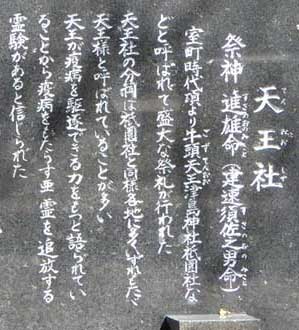 天王社
てんのうしゃ
祭神 進雄命(建速須佐之男命)
室町時代頃より牛頭天王津島神社祇園社な
どと呼ばれて盛大な祭礼が行われた
天王社の分祠は祇園社と同様各地に多くいずれもたゞ
天王様と呼ばれていることが多い
天王が疫病を駆逐できる力をもつと語られてい
ることから疫病をもたらす悪霊を追放する
霊験があると信じられた